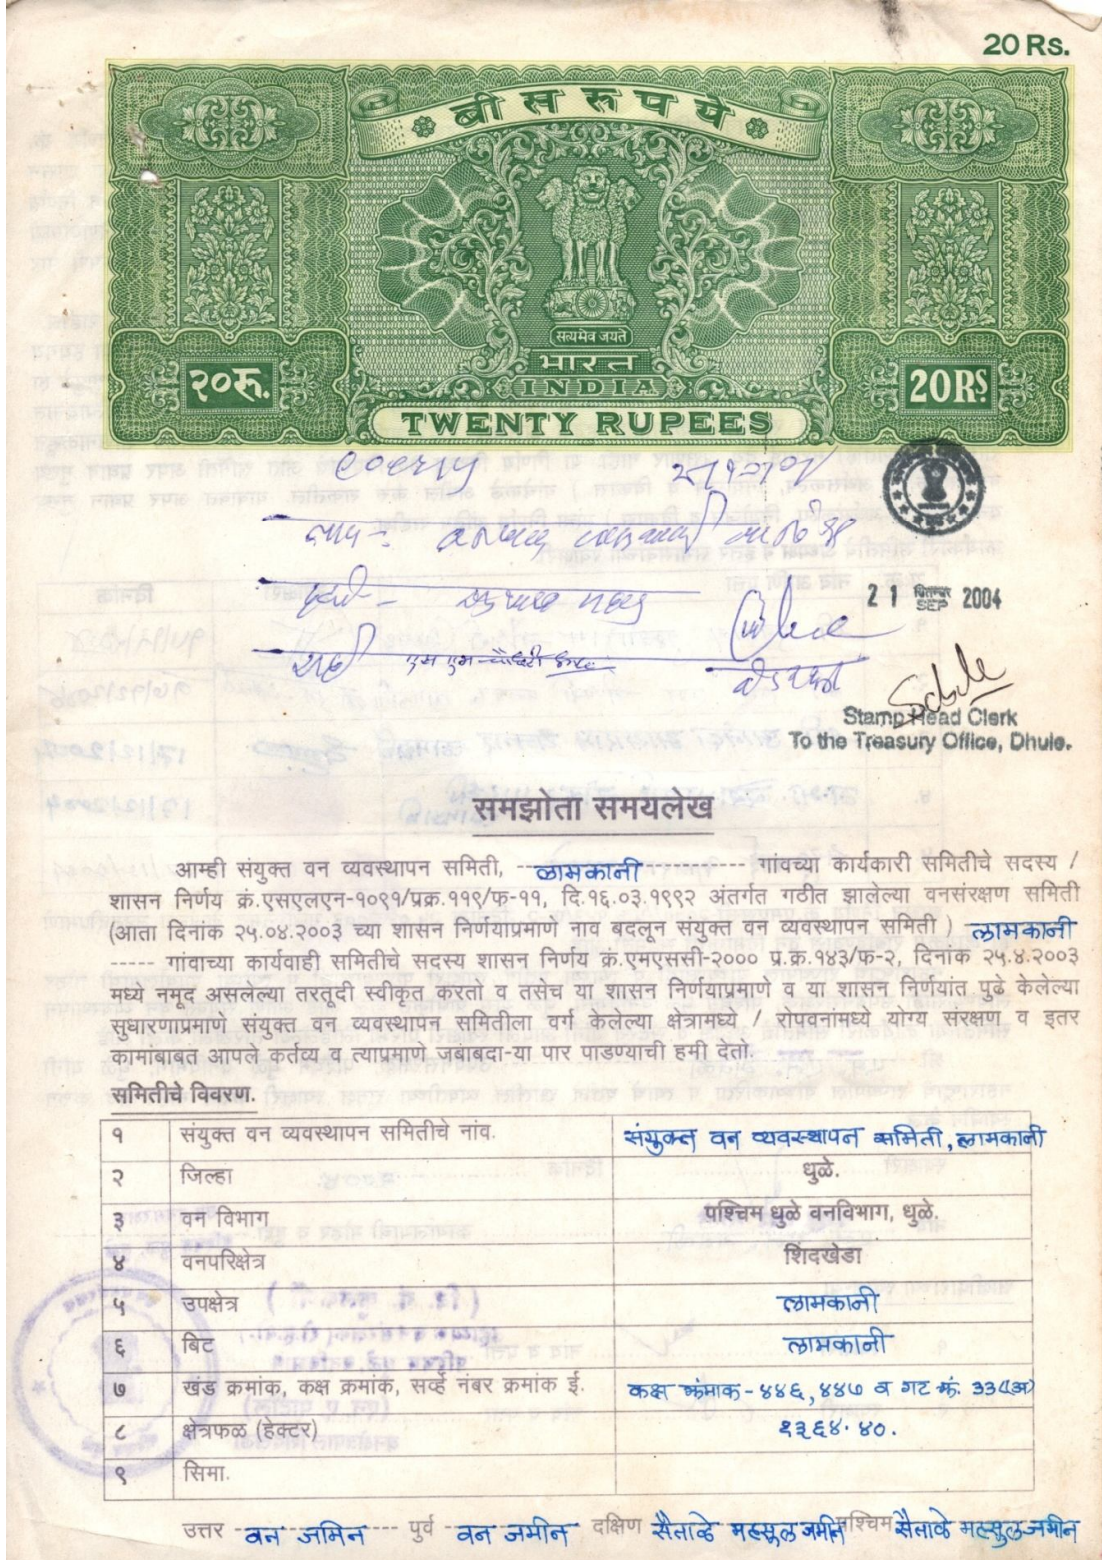 20 Rs.
बीस रुपये
सत्यमेव जयते
भारत
INDIA
२०रू.
20RS
TWENTY RUPEES
21 सितम्बर SEP 2004
Stamp Head Clerk
To the Treasury Office, Dhule.
समझोता समयलेख
आम्ही संयुक्त वन व्यवस्थापन समिती, --लामकानी------------ गांवच्या कार्यकारी समितीचे सदस्य /
शासन निर्णय क्रं.एसएलएन-१०९१/प्रक्र.११९/फ-११, दि.१६.०३.१९९२ अंतर्गत गठीत झालेल्या वनसंरक्षण समिती
(आता दिनांक २५.०४.२००३ च्या शासन निर्णयाप्रमाणे नाव बदलून संयुक्त वन व्यवस्थापन समिती ) लामकानी
----- गांवाच्या कार्यवाही समितीचे सदस्य शासन निर्णय क्रं.एमएससी-२००० प्र.क्र.१४३/फ-२, दिनांक २५.४.२००३
मध्ये नमूद असलेल्या तरतूदी स्वीकृत करतो व तसेच या शासन निर्णयाप्रमाणे व या शासन निर्णयांत पुढे केलेल्या
सुधारणाप्रमाणे संयुक्त वन व्यवस्थापन समितीला वर्ग केलेल्या क्षेत्रामध्ये / रोपवनांमध्ये योग्य संरक्षण व इतर
कामांबाबत आपले कर्तव्य व त्याप्रमाणे जबाबदा-या पार पाडण्याची हमी देतो.
समितीचे विवरण.
१ संयुक्त वन व्यवस्थापन समितीचे नांव. संयुक्त वन व्यवस्थापन समिती, लामकानी
२ जिल्हा धुळे.
३ वन विभाग पश्चिम धुळे वनविभाग, धुळे.
४ वनपरिक्षेत्र शिंदखेडा
५ उपक्षेत्र लामकानी
६ बिट लामकानी
७ खंड क्रमांक, कक्ष क्रमांक, सर्व्हे नंबर क्रमांक ई. कक्ष क्रंमाक - ४४६, ४४७ व गट नं.
८ क्षेत्रफळ (हेक्टर) १३६४.४०.
९ सिमा.
उत्तर - वन जमिन --- पुर्व वन जमीन दक्षिण सैताळे महसुल जमीन पश्चिम सैताळे महसुल जमीन